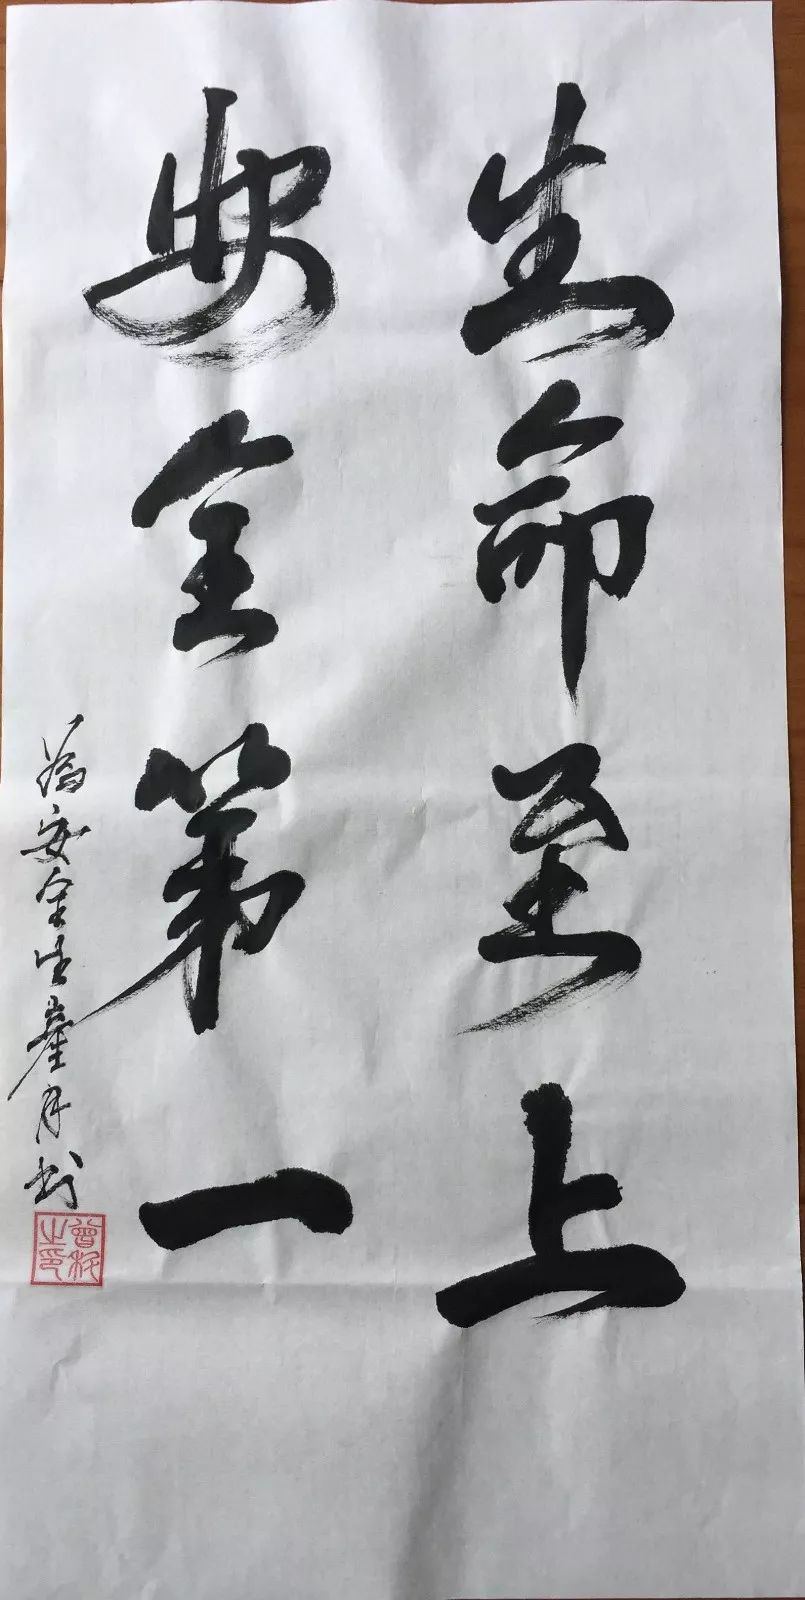 生命至上
安全第一
为安全生產月书